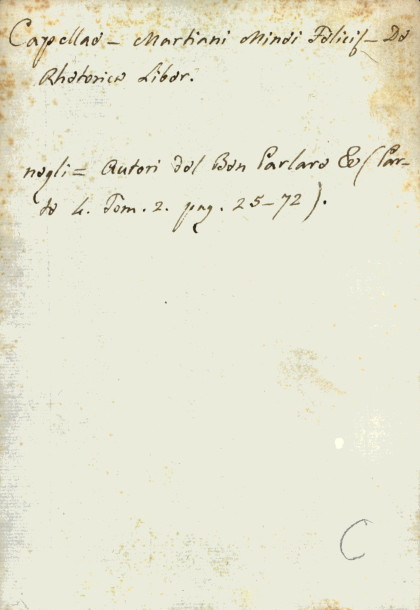 Capellae - Martiani Minei Felicis - De
Rhetorica Liber.
negli = Autori del Ben Parlare &c (Par-
te 4. Tom. 2. pag. 25-72).
C